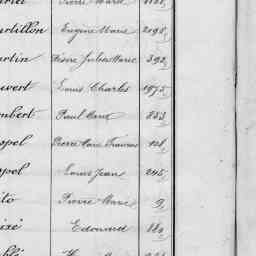 Pierre Marie
rtillon Eugène Marie 2198
rtin Désiré Julien Marie 392
uvert Louis Charles 1975
mbert Paul Marie 253
spel Pierre Marie François 128
spel Louis Jean 245
ito Pierre Marie 9
ixé Edouard 180